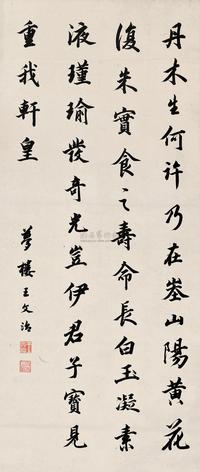 丹木生何許乃在峚山陽黃花
復朱實食之壽命長白玉凝素
液瑾瑜發奇光豈伊君子寶見
重我軒皇
夢樓王文治